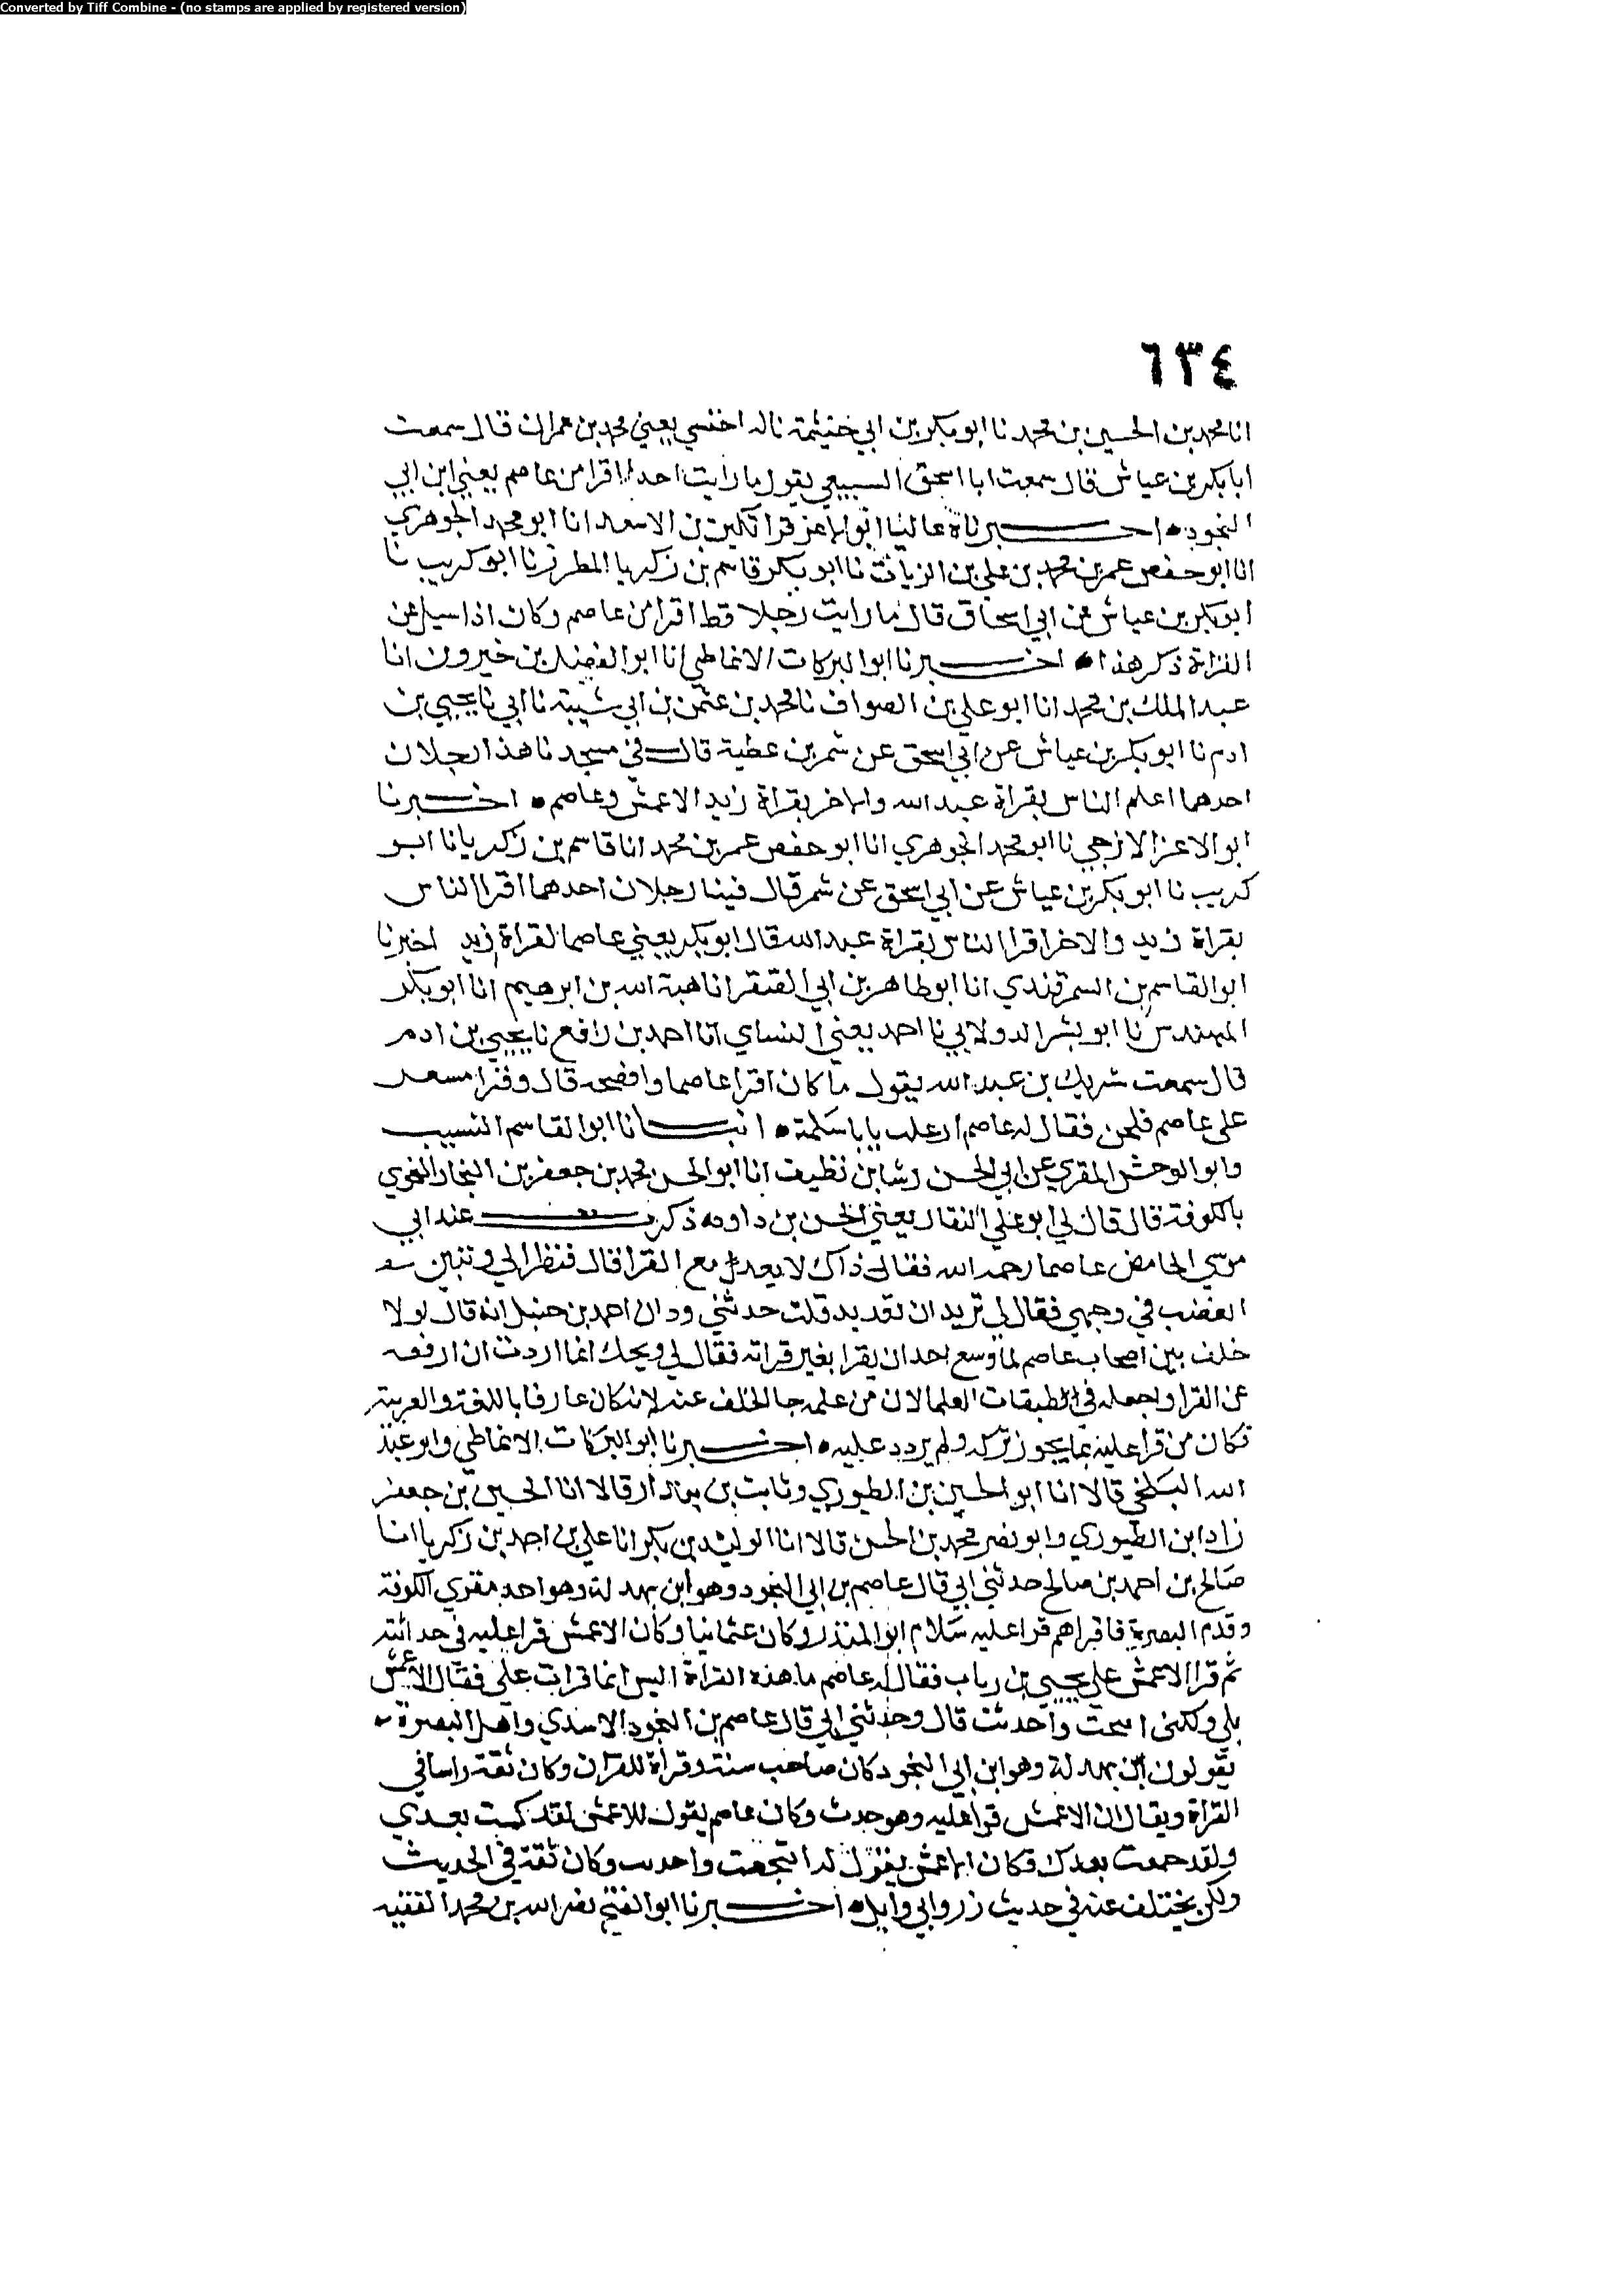 Converted by Tiff Combine - (no stamps are applied by registered version)
٦٣٤
انا محمد بن الحسين بن محمد نا ابو بكر بن ابي خيثمة نا الاخنسي يعني محمد بن عمران قال سمعت
ابا بكر بن عياش قال سمعت ابا اسحق السبيعي يقول ما رايت احدا اقرا من عاصم يعني ابن ابي
النجود • اخبرناه عاليا ابو الاعز قراتكين بن الاسعد انا ابو محمد الجوهري
انا ابو حفص عمر بن محمد بن علي بن الزيات نا ابو بكر قاسم بن زكريا المطرز نا ابو كريب نا
ابو بكر بن عياش عن ابي اسحاق قال ما رايت رجلا قط اقرا من عاصم وكان اذا سيل عن
القراة ذكر هذا • اخبرنا ابو البركات الانماطي انا ابو الفضل بن خيرون انا
عبد الملك بن محمد انا ابو علي بن الصواف نا محمد بن عثمن بن ابي شيبة نا ابي نا يحيي بن
ادم نا ابو بكر بن عياش عن ابي اسحق عن شمر بن عطية قال في مسجدنا هذا رجلان
احدهما اعلم الناس بقراة عبد الله والاخر بقراة زيد الاعمش وعاصم • اخبرنا
ابو الاعز الازجي نا ابو محمد الجوهري انا ابو حفص عمر بن محمد انا قاسم بن زكريا نا ابو
كريب نا ابو بكر بن عياش عن ابي اسحق عن شمر قال فينا رجلان احدهما اقرا الناس
بقراة زيد والاخر اقرا الناس بقراة عبد الله قال ابو بكر يعني عاصما لقراة زيد اخبرنا
ابو القاسم بن السمرقندي انا ابو طاهر بن ابي الصقر انا هبة الله بن ابرهيم انا ابو بكر
المهندس نا ابو بشر الدولابي نا احمد يعني النساي انا احمد بن رافع نا يحيي بن ادم
قال سمعت شريك بن عبد الله يقول ما كان اقرا عاصما وافصحه قال وقرا مسعر
علي عاصم فلحن فقال له عاصم ارعلت يابا سلمة • انبانا ابو القاسم النسيب
وابو الوحش المقري عن ابي الحسن رشا بن نظيف انا ابو الحسن محمد بن جعفر بن النجار النحوي
بالكوفة قال قال لي ابو علي النقار يعني الحسن بن داود ذكرت عند ابي
موسي الحامض عاصما رحمه الله فقال ذاك لا يعد مع القرا قال فنظر الي وتبين
الغضب في وجهي فقال لي تريد ان تعديد قلت حدثني ودان احمد بن حنبل انه قال لولا
خلف بين اصحاب عاصم لما وسع احد ان يقرا بغير قراته فقال لي ويحك انما اردت ان ارفعه
عن القرا واجعله في الطبقات العلما لان من علمه جا الخلف عنه لانه كان عارفا باللغة والعربية
فكان من قرا عليه بما يجوز تركه ولم يردد عليه • اخبرنا ابو البركات الانماطي وابو عبد
الله البلخي قالا انا ابو الحسين بن الطيوري وثابت بن بندار قالا انا الحسين بن جعفر
زاد ابن الطيوري وابو نصر محمد بن الحسن قالا انا الوليد بن بكر انا علي بن احمد بن زكريا انا
صالح بن احمد بن صالح حدثني ابي قال عاصم بن ابي النجود وهو ابن بهدلة وهو احد مقري الكوفة
وقدم البصرة فاقراهم قرا عليه سلام ابو المنذر وكان عثمانيا وكان الاعمش قرا عليه في حداثته
ثم قرا الاعمش علي يحيي بن رياب فقال له عاصم ما هذه القراة اليس انما قرات علي فقال الاعمش
بلي ولكني اسحت واحدثت قال وحدثني ابي قال عاصم بن النجود الاسدي واهل البصرة
يقولون ابن بهدلة وهو ابن ابي النجود كان صاحب سنة وقراة للقران وكان ثقة راسا في
القراة ويقال ان الاعمش قرا عليه وهو حدث وكان عاصم يقول للاعمش لقد كست بعدي
ولقد حمعت بعدك فكان الاعمش يقول له انتجعت واحدت وكان ثقة في الحديث
ولكن يختلف عنه في حديث زر وابي وايل • اخبرنا ابو الفتح نصر الله بن محمد الفقيه